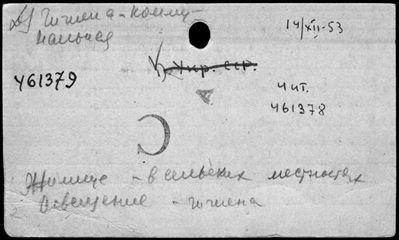 Гигиена - комму-
нальная
14/XII-53
У61379
Укр. сср.
Чит.
У61378
Жилище - в сельских местностях
Освещение - гигиена